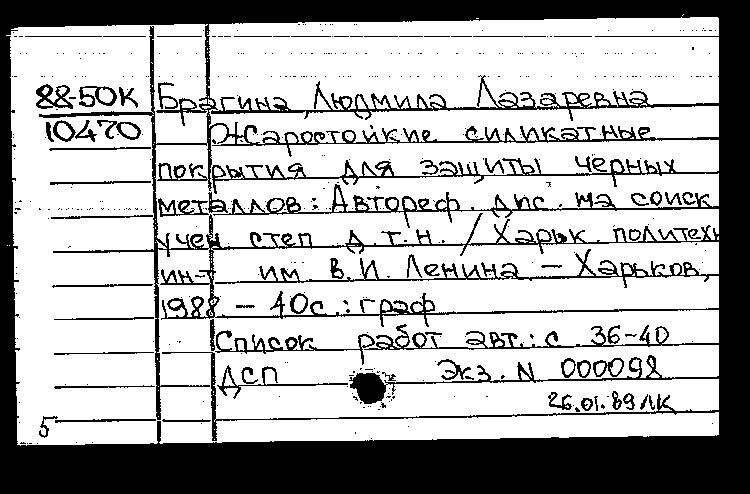 88-50К Брагина, Людмила Лазаревна
10470 Жаростойкие силикатные
покрытия для защиты черных
металлов: Автореф. дис. на соиск
учен. степ д. т. н. / Харьк. политехн
ин-т им. В. И. Ленина – Харьков,
1988 – 40с.: граф
Список работ авт.: с. 36-40
ДСП Экз. N 000092
26.01.89 ЛК
5